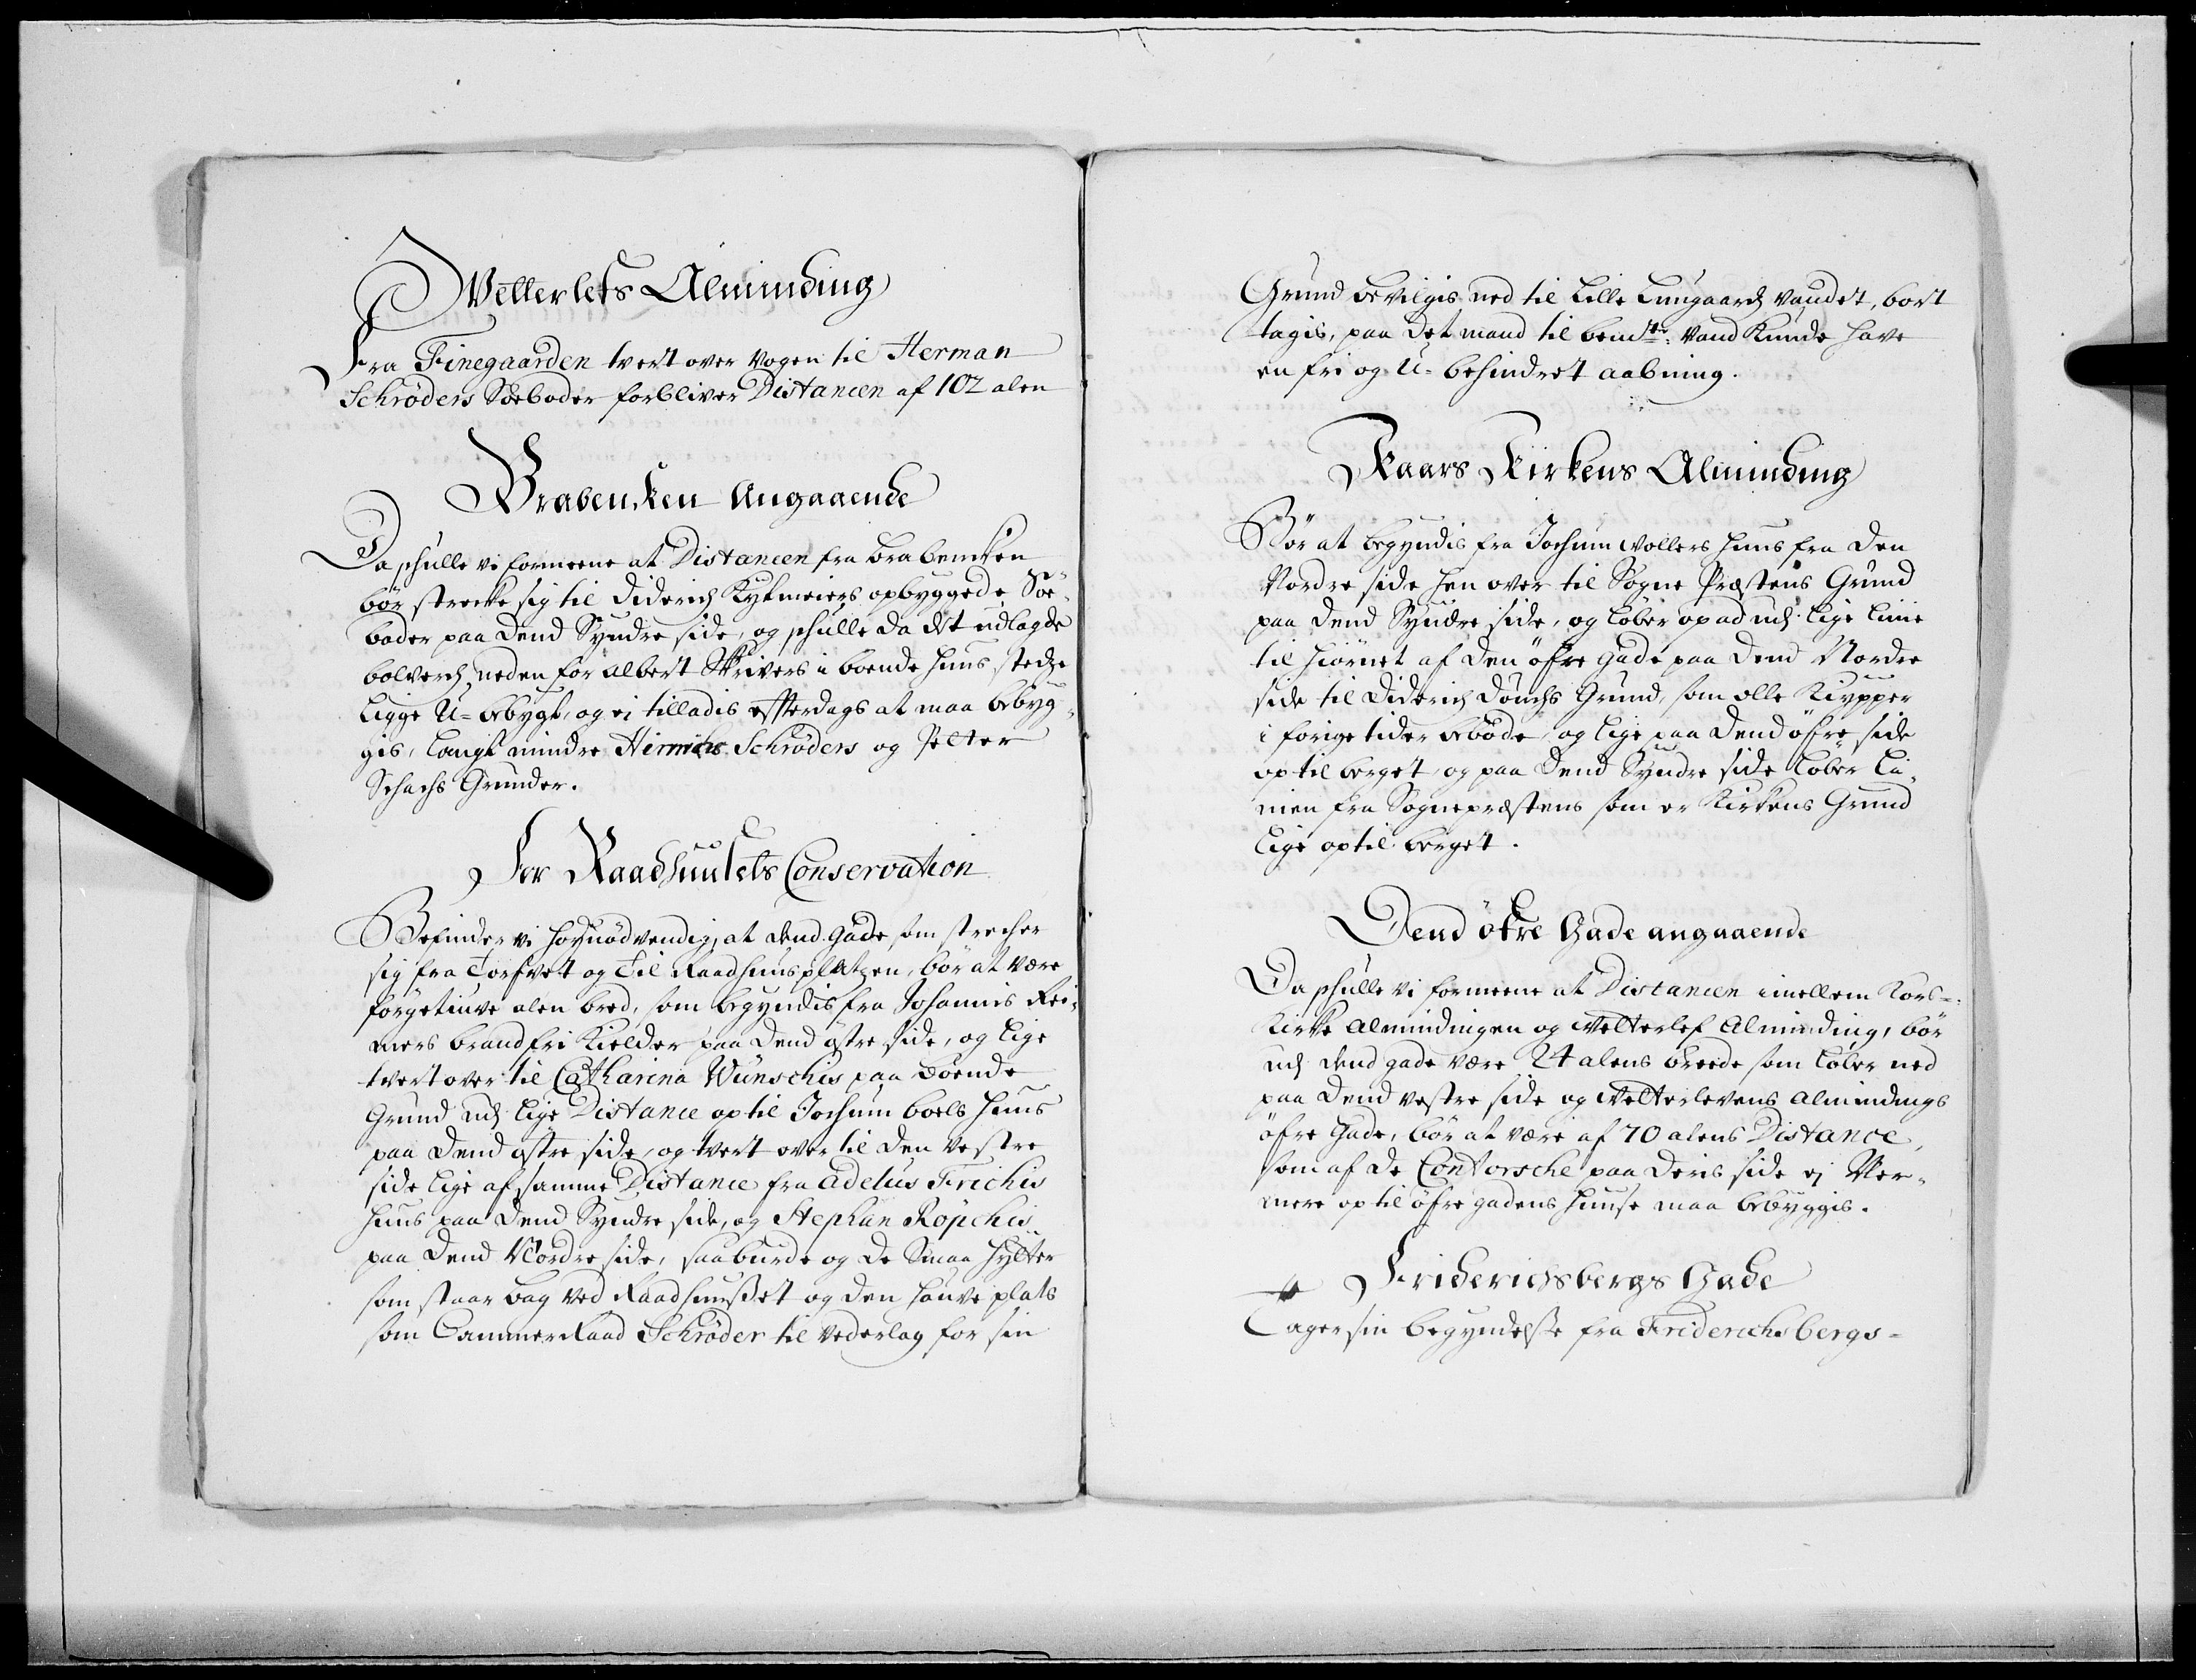 Wetterlefs Alminding
Fra Finegaarden tvert over vogen til Herman
Schrøders Søeboder forbliver Distancen af 102 alen
Brabencken Angaaende
Da schulle vi formeene at Distancen fra brabencken
bør strecke sig til Diderich Kytmeiers opbyggede Søe-
boder paa dend Syndre side, og schulle da det udlagde
bolverch neden for Albert Skrivers i boende huus stedze
ligge U-bebygt, og ei tilladis effterdags at maa bebyg-
gis, langt mindre Hinrich Schrøders og Petter
Schachs Grunder.
For Raadhuusets Conservation
Befinder vi høynødvendig, at dend Gade som strecher
sig fra Torfvet og til Raadhuusplatzen, bør at være
førgetiuve alen bred, som begyndis fra Johannis Rei-
mers brandfri Kielder paa dend østre side, og lige
tvert over til Catharina Wünschis paa boende
Grund udj lige Distance op til Jochum boels huus
paa dend østre side, og tvert over til den vestre
side lige af samme Distance fra Adelus Frichis
huus paa dend Syndre side, og Stephan Røpchis
paa dend Nordre side, saa burde og de Smaa hytter
som staar bag ved Raadhuusset og den hauve plats
som CammerRaad Schrøder til vederlag for sin
Grund bevilgis ned til Lille Lungaards vandet, bort
tagis, paa det mand til bemte: vand kunde have
en fri og U-behindret aabning.
Kaars Kirkens Alminding
Bør at begyndis fra Jochum Wollers huus fra den
Nordre side hen over til Sogne Præstens Grund
paa dend Syndre side, og løber op ad udj lige linie
til hiørnet af den øfre gade paa dend Nordre
side til Diderich Douchs Grund, som Olle Kiypper
i forige tider beboede, og lige paa dend øfre side
op til berget, og paa dend Syndre side løber Li-
nien fra Sognepræstens som er Kirkens Grund
lige op til berget.
Dend øfre Gade angaaende
Da schulle vi formeene at Distancen imellem Kors-
Kirke Almindingen og Wetterlef Alminding, bør
udj dend gade være 24 alens brede som løber ned
paa dend vestre side og Wetterlevens Almindings
øfre Gade, bør at være af 70 alens Distance,
som af de Contorsche paa deris side ej Ner-
mere op til øfre gadens huuse maa bebyggis.
Friderichsbergs Gade
Tager sin begyndelse fra Friderichsbergs-